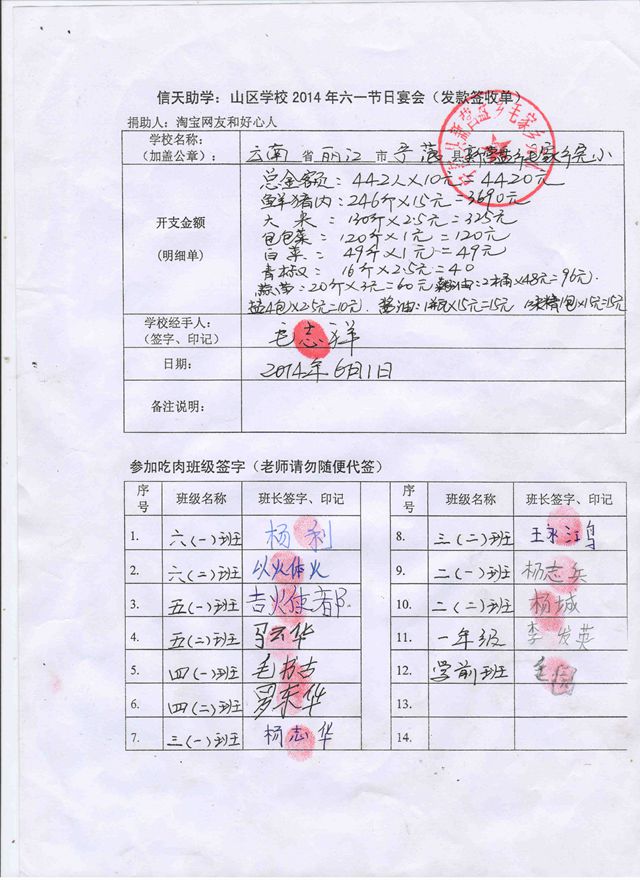 信天助学：山区学校 2014 年六一节日宴会（发款签收单）
捐助人：淘宝网友和好心人
学校名称：
（加盖公章）：
云南省丽江市宁蒗县新营盘乡毛家乡完小
开支金额
（明细单）
总金额：442人×10元=4420元
鲜猪肉：246斤×15元=3690元
大米：130斤×2.5元=325元
包包菜：120斤×1元=120元
白菜：49斤×1元=49元
青椒：16斤×2.5元=40
20斤×3元=60元 油：2桶×48元=96元
盐4包×2.5元=10元 酱油：1瓶×15元=15元 味精1包×15元=15元
学校经手人：
（签字、印记）
毛志祥
日期：
2014年6月1日
备注说明：
参加吃肉班级签字（老师请勿随便代签）
序号 班级名称 班长签字、印记 序号 班级名称 班长签字、印记
1. 六（一）班 杨利 8. 三（二）班
2. 六（二）班 以火体火 9. 二（一）班 杨志兵
3. 五（一）班 吉火使者 10. 二（二）班 杨城
4. 五（二）班 马云华 11. 一年级 李发英
5. 四（一）班 毛书古 12. 学前班 毛
6. 四（二）班 罗东华 13.
7. 三（一）班 杨志华 14.